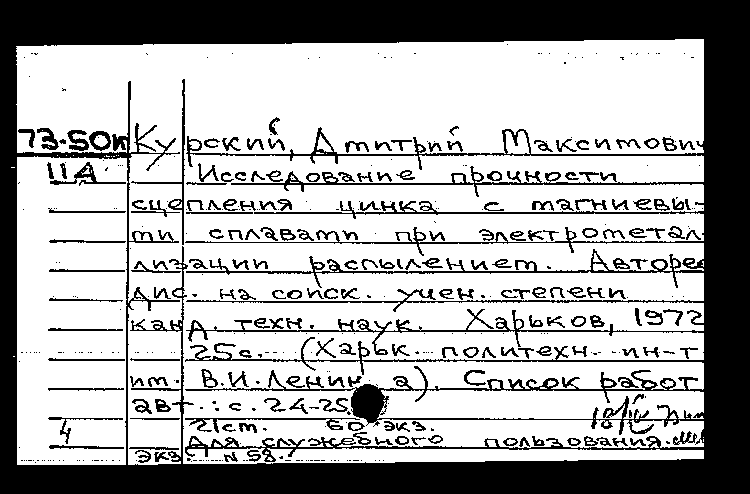 73-50к Курский, Дмитрий Максимович
11А Исследование прочности
сцепления цинка с магниевы-
ми сплавами при электрометал-
лизации распылением. Авторе
дис. на соиск. учен. степени
канд. техн. наук. Харьков, 1972
25с. (Харьк. политехн. ин-т
им. В.И. Ленина). Список работ
авт.: с. 24-25
21см. 60 экз.
4 Для служебного пользования.
экз. N 58.